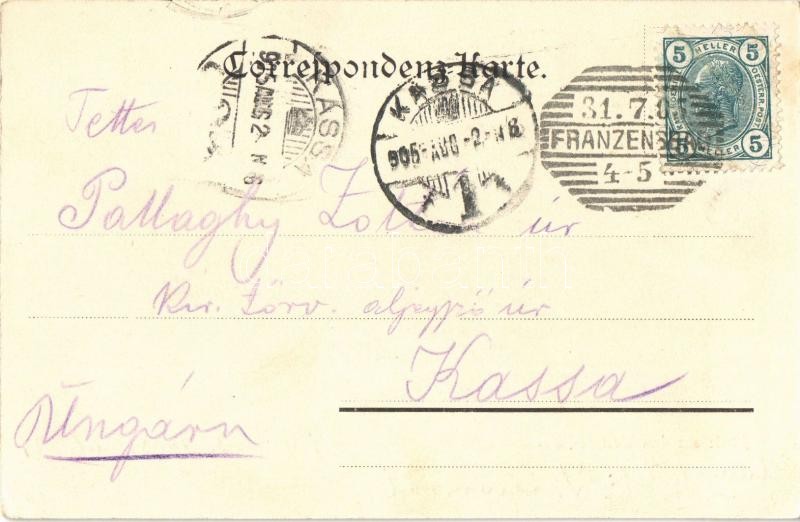 Correspondenz-Karte.
KASSA
905 AUG 2 N 8
KASSA
905 AUG -2 N 8
1
31.7.0
FRANZENS
4-5
5 HELLER 5
5 HELLER 5
Tettes
Pallaghy Zoltán úr
kir. törv. aljegyző úr
Kassa
Ungárn